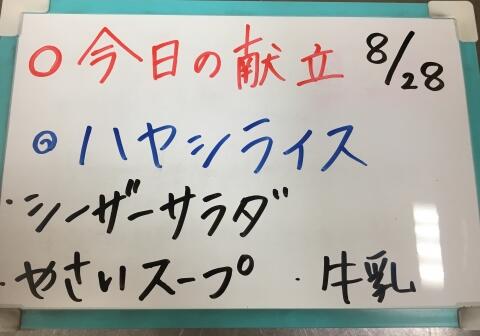 ○今日の献立 8/28
◎ハヤシライス
・シーザーサラダ
・やさいスープ ・牛乳